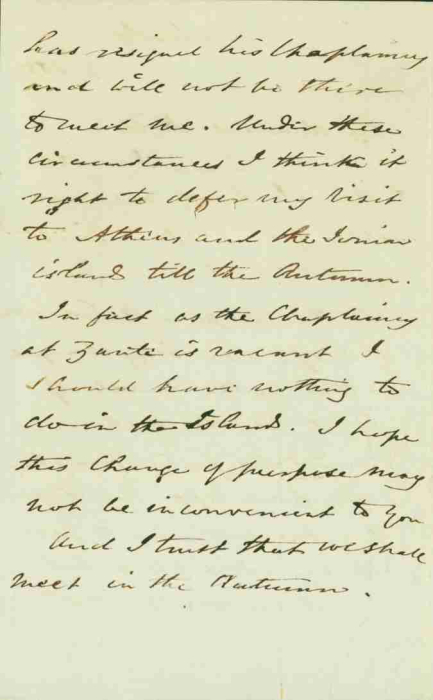 has resigned his Chaplaincy
and will not be there
to meet me. Under these
circumstances I think it
right to defer my visit
to Athens and the Ionian
islands till the Autumn.
In fact as the Chaplaincy
at Zante is vacant I
should have nothing to
do in the Islands. I hope
this change of purpose may
not be inconvenient to you
and I trust that we shall
meet in the Autumn.